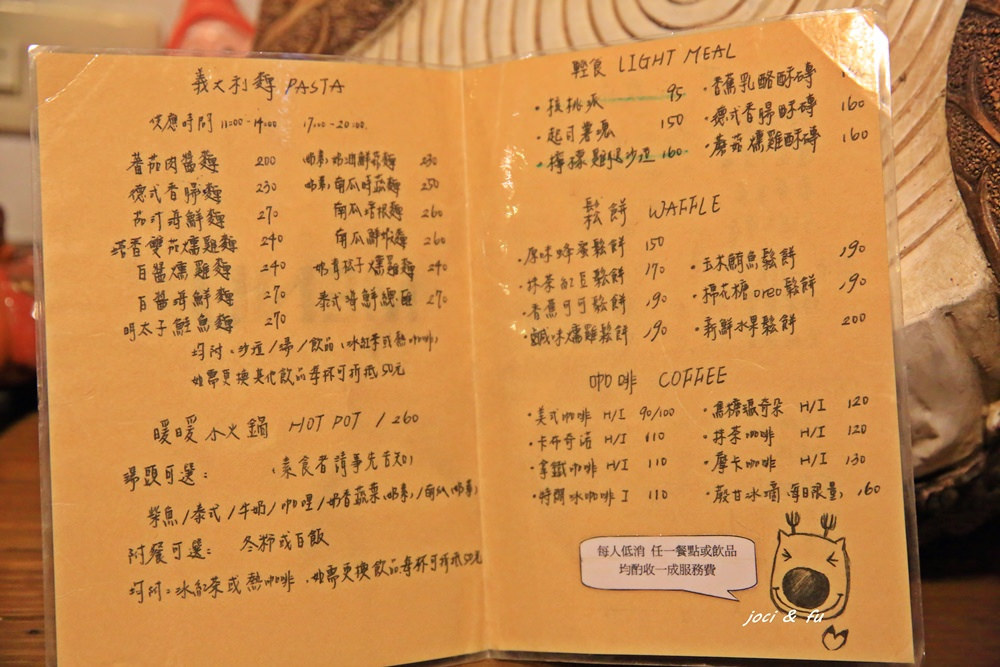 義大利麵 PASTA
供應時間 11:00-14:00 17:00-20:00
蕃茄肉醬麵 200
奶素:奶油鮮菇麵 230
德式香腸麵 230
奶素:南瓜時蔬麵 250
茄汁海鮮麵 270
南瓜培根麵 260
蒜香雙菇燻雞麵 240
南瓜鮮蝦麵 260
白醬燻雞麵 240
奶青瓜子燻雞麵 240
白醬海鮮麵 270
泰式海鮮 270
明太子鮭魚麵 270
均附:沙拉/湯/飲品(冰紅茶或熱咖啡)
如需更換其他飲品每杯可折抵50元
暖暖小火鍋 HOT POT / 260
湯頭可選: (素食者請事先告知)
柴魚/泰式/牛奶/咖哩/奶香蔬菜(奶素)/南瓜(奶素)
附餐可選: 冬粉或白飯
均附:冰紅茶或熱咖啡,如需更換飲品每杯可折抵50元
輕食 LIGHT MEAL
·核桃派 95
·香蕉乳酪酥磚
·起司薯派 150
·德式香腸酥磚 160
·檸檬雞柳沙拉 160
·蘑菇燻雞酥磚 160
鬆餅 WAFFLE
·原味蜂蜜鬆餅 150
·玉米鮪魚鬆餅 190
·抹茶紅豆鬆餅 170
·棉花糖oreo鬆餅 190
·香蕉可可鬆餅 190
·新鮮水果鬆餅 200
·鹹味燻雞鬆餅 190
咖啡 COFFEE
·美式咖啡 H/I 90/100
·焦糖瑪奇朵 H/I 120
·卡布奇諾 H/I 110
·抹茶咖啡 H/I 120
·拿鐵咖啡 H/I 110
·摩卡咖啡 H/I 130
·特調冰咖啡 I 110
·冰滴(每日限量) 160
每人低消 任一餐點或飲品
均酌收一成服務費
joci & fu